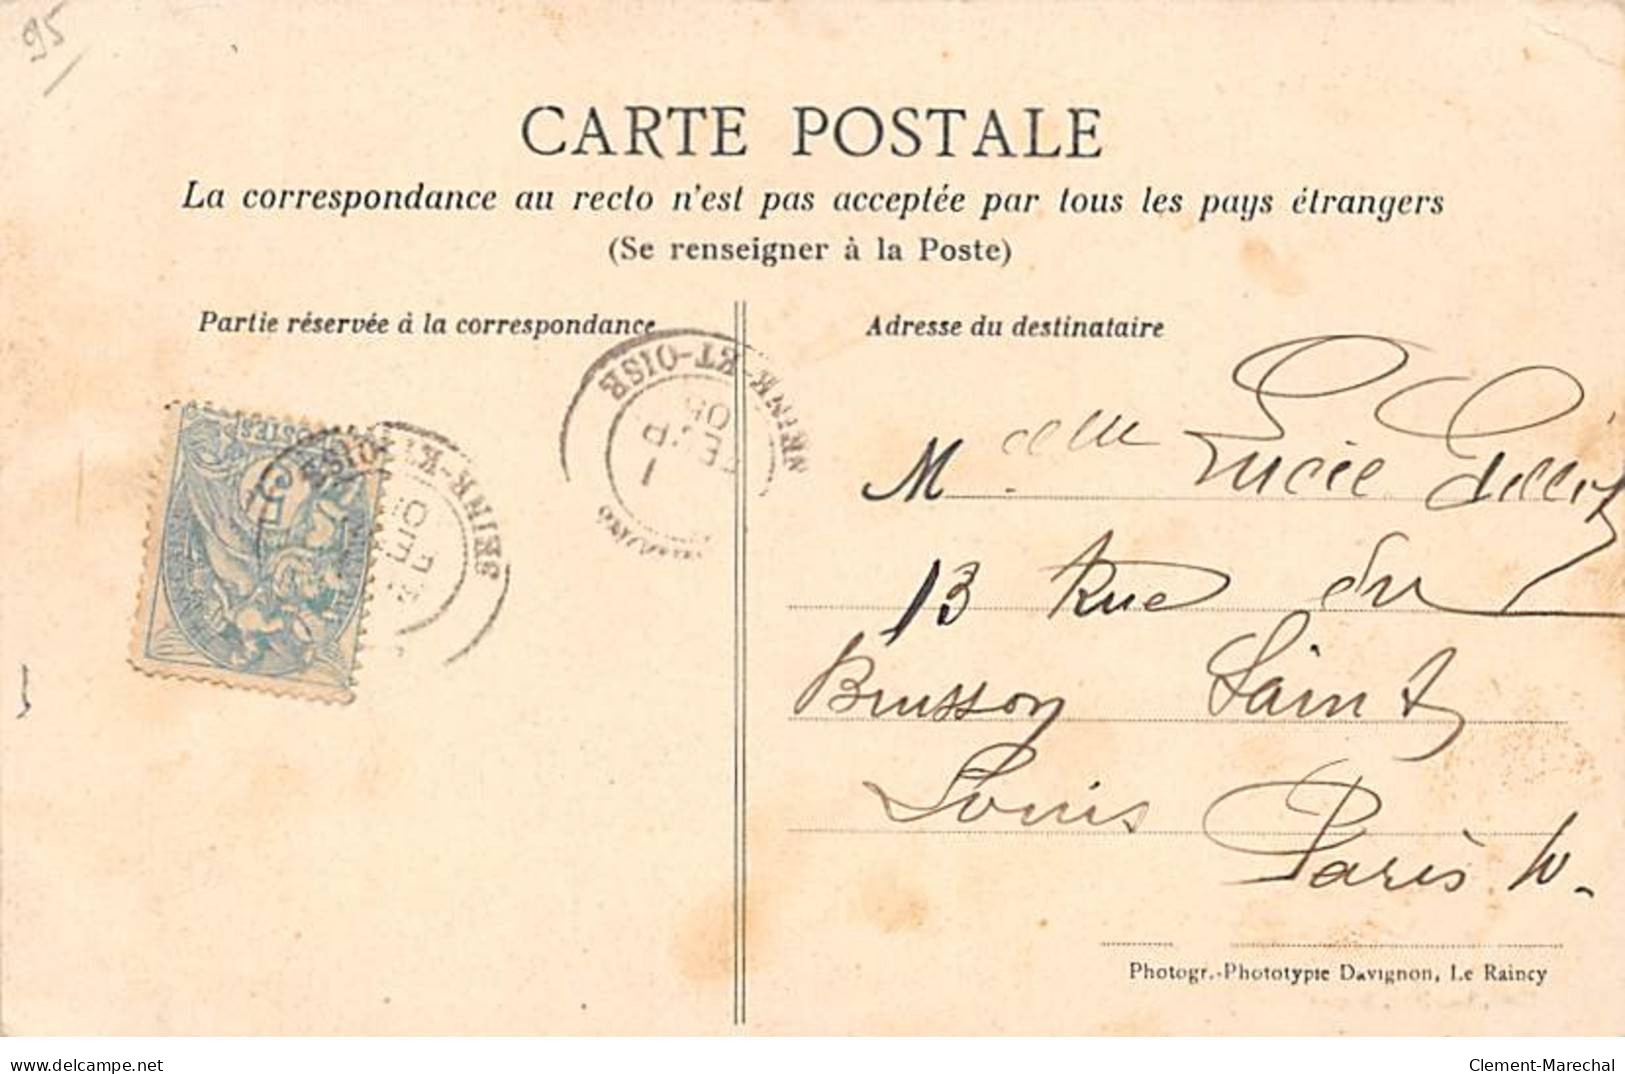 95
CARTE POSTALE
La correspondance au recto n'est pas acceptée par tous les pays étrangers
(Se renseigner à la Poste)
Partie réservée à la correspondance
Adresse du destinataire
SEINE-ET-OISE
SEINE-ET-OISE
POSTES
Melle Lucie
13 Rue du
Buisson Saint
Louis Paris
Photogr.-Phototypie Davignon, Le Raincy
delcampe.net
Clement-Marechal